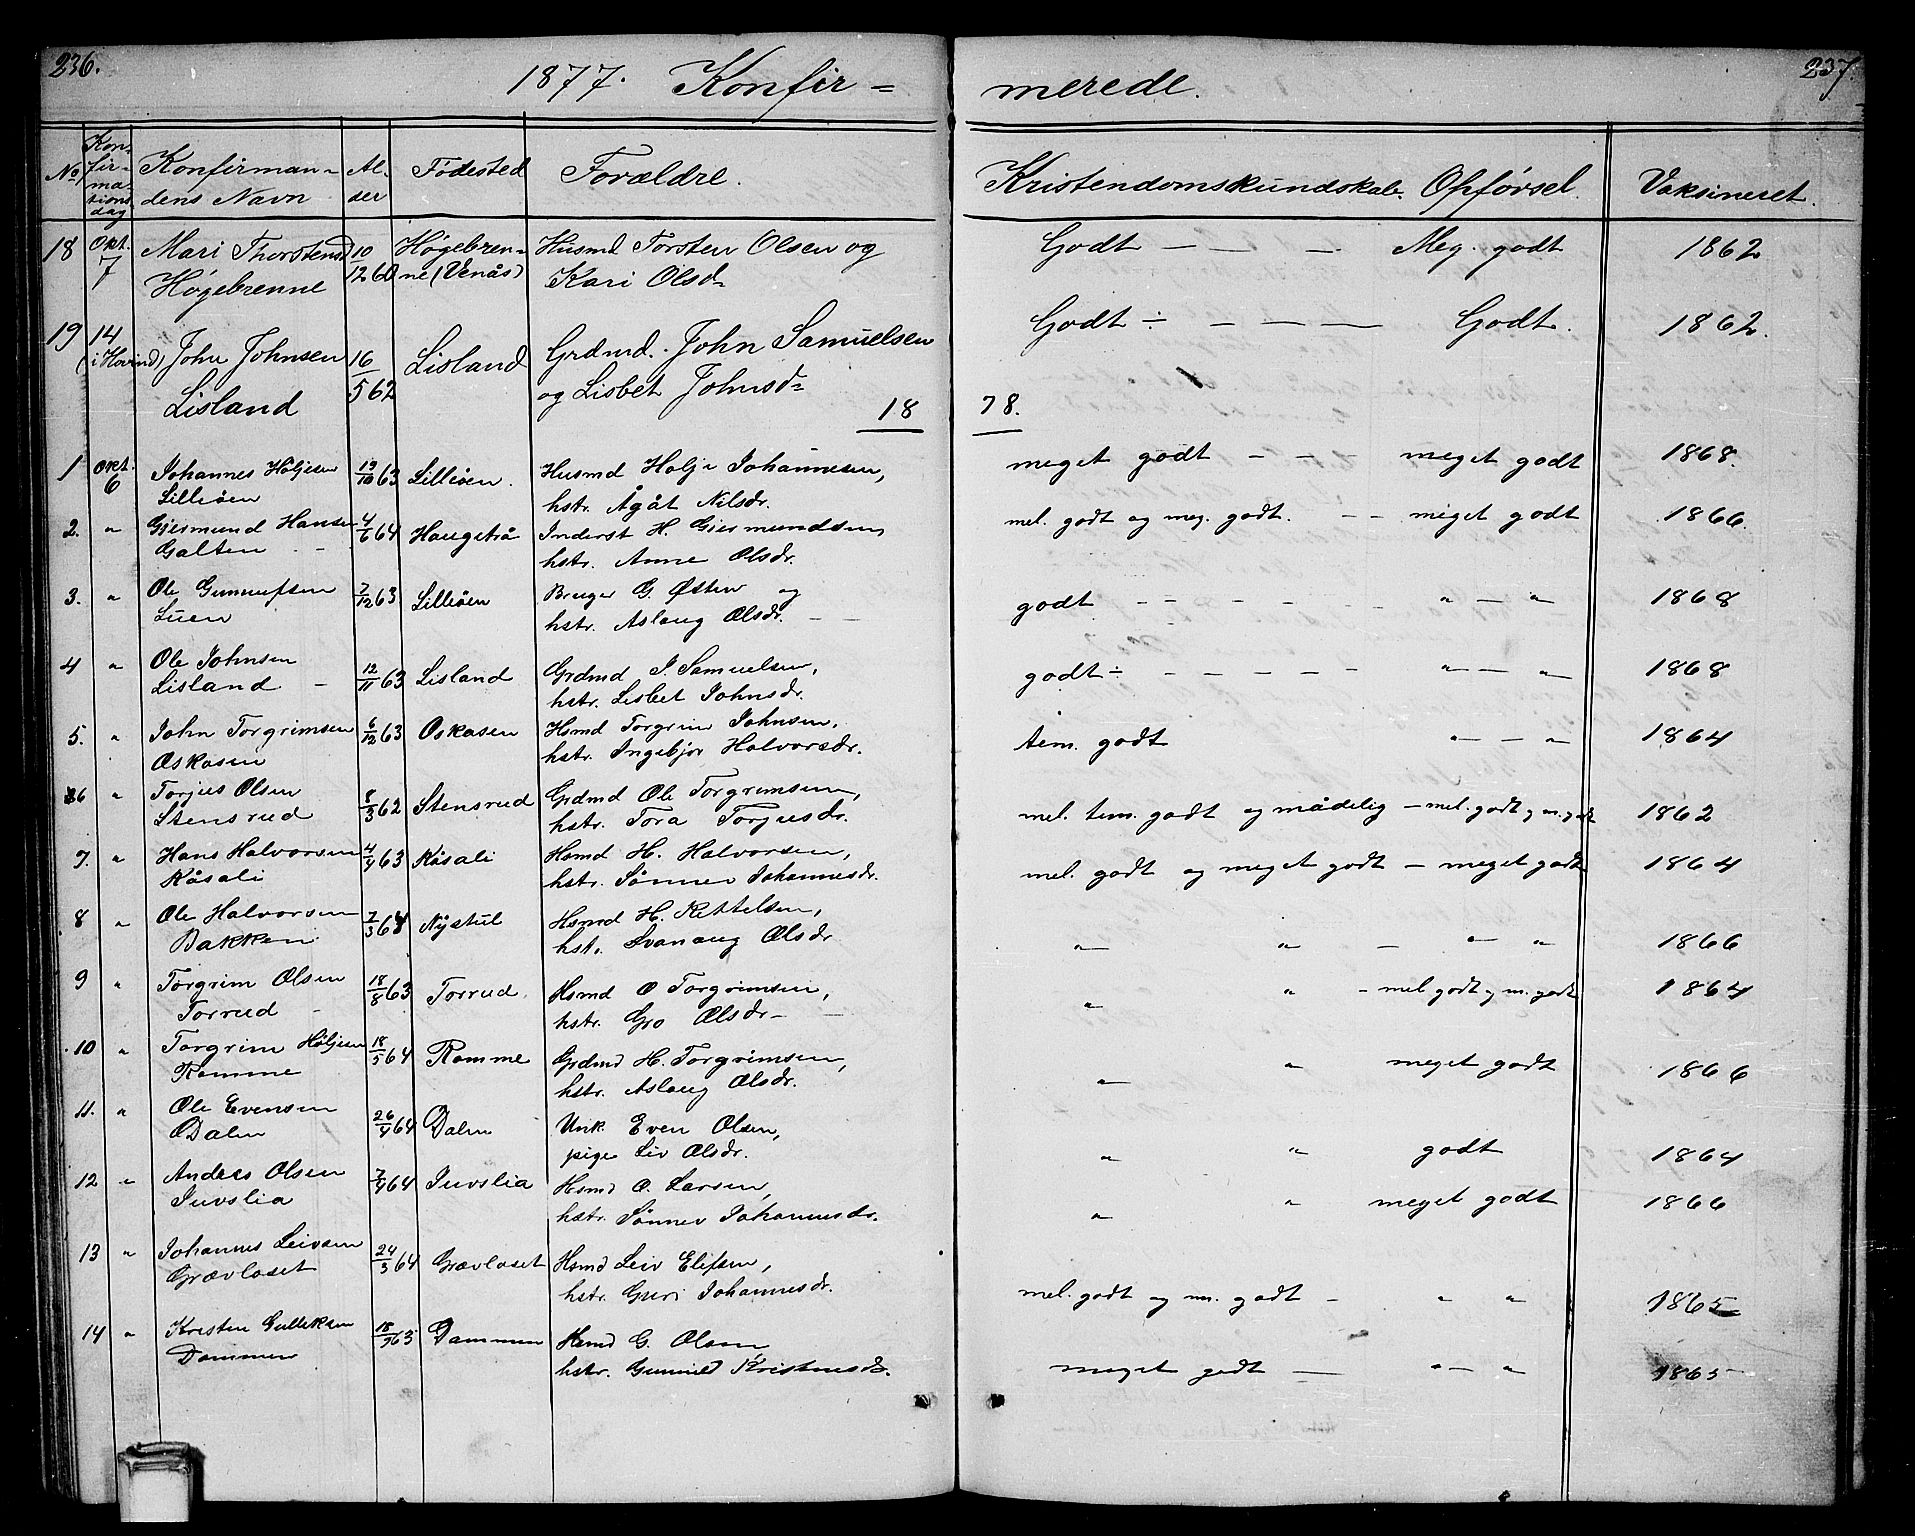 236.
1877. Konfir=
merede.
237.
No
Kon-
fir-
ma-
tions
dag
Konfirman-
dens Navn
Al-
der
Fødested
Forældre.
Kristendomskundskab.
Opførsel.
Vaksineret.
18 Okt. 7 Mari Thorstensd 10/12 60 Høgebren- Husmd Torsten Olsen og Godt — — — Meg. godt 1862
Høgebrenne ne (Venås) Kari Olsd=
19 14 John Johnsen 16/5 62 Lisland Grdmd. John Samuelsen Godt ÷ — — — Godt. 1862.
(i Hovind) Lisland og Lisbet Johnsd=
18 78.
1 Okt. 6 Johannes Høljesen 19/10 63 Lilleøen. Husmd Holje Johannesen, meget godt - - - meget godt 1868.
Lilleøen hstr. Ågåt Nilsdr.
2. " Gjermund Hansen 4/6 64 Haugstrå Inderst H. Gjermundsen, mel. godt og meg. godt. - - meget godt 1866.
Galten hstr. Anne Olsdr.
3. " Ole Gunnufsen 7/12 63 Lilleøen Bruger G. Østen og godt - - - - - " — " 1868
Luen hstr. Aslaug Olsdr.
4 " Ole Johnsen 12/11 63 Lisland Grdmd J. Samuelsen, godt ÷ - - - - - " — " 1868
Lisland - hstr. Lisbet Johnsdr.
5. " John Torgrimsen 6/12 63 Oskasen Hsmd Torgrim Johnsen, tem. godt " — " 1864
Oskasen hstr. Ingebjør Halvorsdr.
6 " Torjus Olsen 8/3 62 Stensrud Grdmd Ole Torgrimsen, mel. tem. godt og mådelig - mel. godt og m. godt 1862
Stensrud hstr. Tora Torjusdr.
7. " Hans Halvorsen 4/9 63 Kåsali Hsmd H. Halvorsen, mel. godt og meget godt - meget godt 1864
Kåsali hstr. Sønnev Johannesdr.
8 " Ole Halvorsen 7/3 64 Nystul Hsmd H. Kittelsen, " " - " " 1866
Bakken hstr. Svanaug Olsdr
9 " Torgrim Olsen 18/8 63 Torrud. Hsmd O Torgrimsen, " " - mel godt og m. godt 1864
Torrud hstr. Gro Olsdr-
10 " Torgrim Høljesen 18/5 64 Ramme Grdmd H. Torgrimsen, " " meget godt 1866
Ramme hstr. Aslaug Olsdr.
11. " Ole Evensen 26/4 64 Dalen Unk. Even Olsen, " " godt 1864
Dalen pige Liv Olsdr.
12 " Anders Olsen 7/4 64 Juvslia Hsmd O. Larsen, " " meget godt 1866
Juvslia hstr. Sønnev Johannesdr.
13 " Johannes Leivsen 24/3 64 Grævloset Hsmd Leiv Elifsen, mel. godt og m. godt - " " 1865
Grævloset hstr. Guri Johannesdr.
14 " Kristen Gulleksen 18/9 63 Dammen Hsmd G. Olsen meget godt — " — " 1865
Dammen hstr. Gunnild Kristensd.